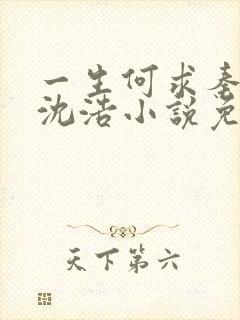 一生何求秦
沈浩小說免
天下第六